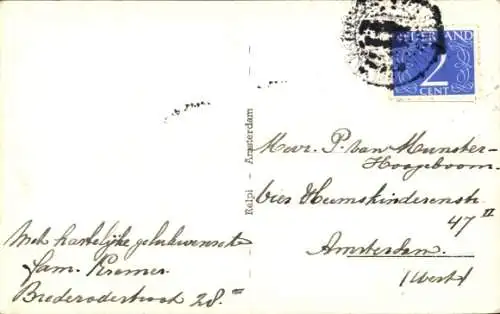 NEDERLAND
2
CENT
Relpi - Amsterdam
Mevr. P. van Munster-
Hoogeboom.
Vier Heemskinderenstr.
47 II
Amsterdam.
(West)
Met hartelijke gelukwensch
fam. Kramer.
Brederodestraat 28. III